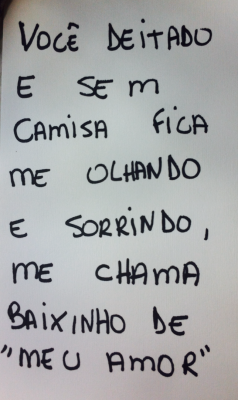 VOCÊ DEITADO
E SEM
CAMISA FICA
ME OLHANDO
E SORRINDO,
ME CHAMA
BAIXINHO DE
"MEU AMOR"